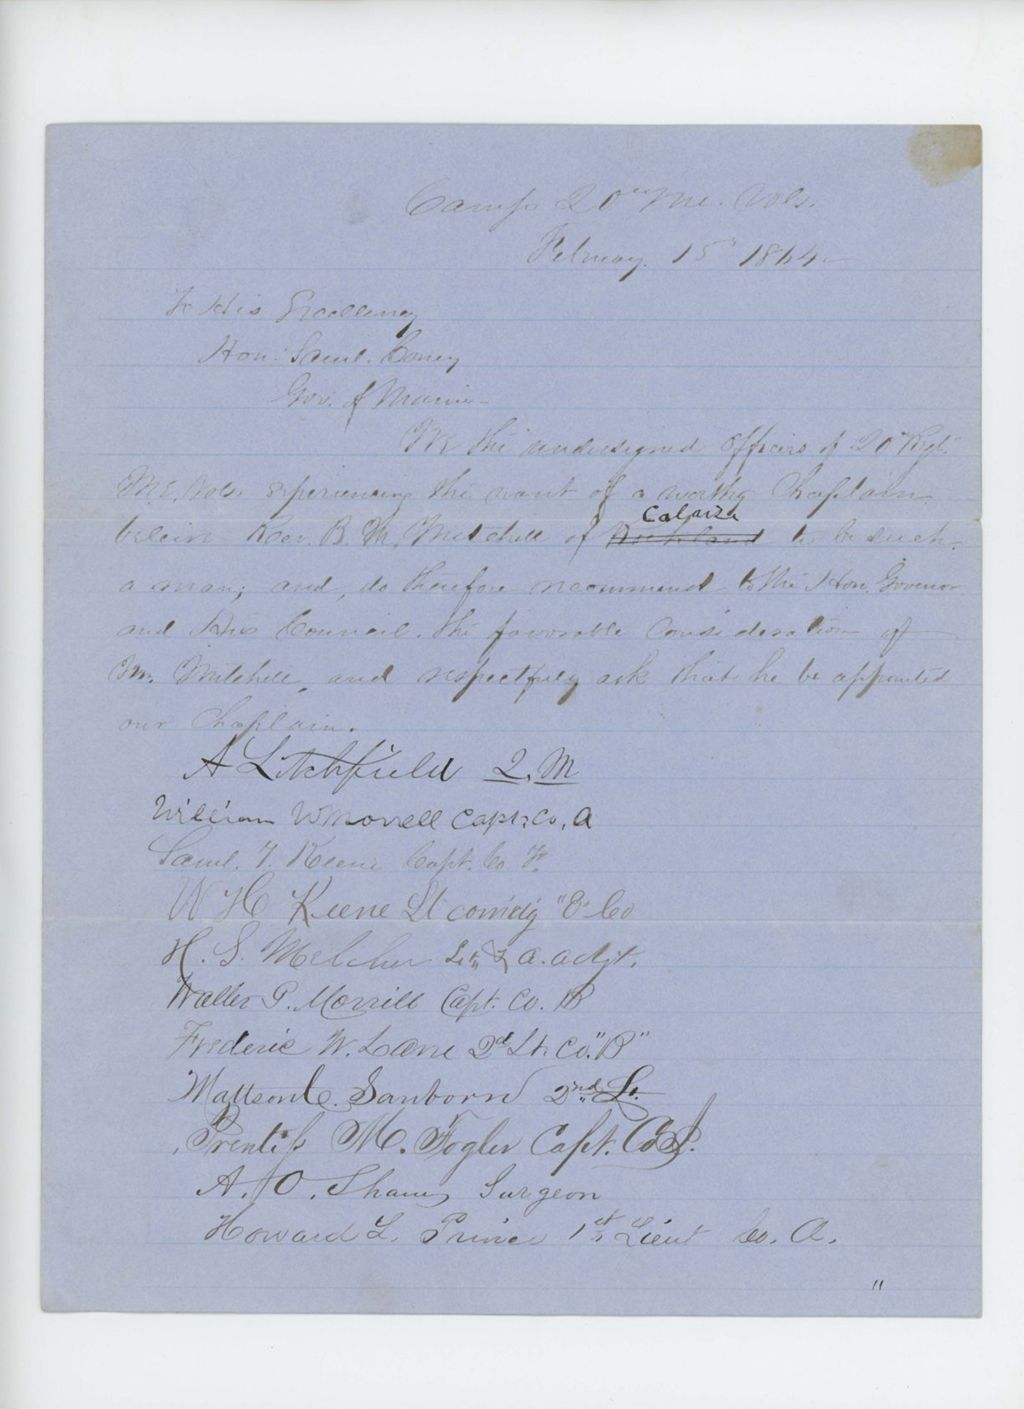 Camp 20th Me. Vols.
February 15" 1864
To His Excellency
Hon: Saml. Coney
Gov. of Maine
We the undersigned Officers of 20" Regt.
Me. Vols. experiencing the want of a worthy Chaplain
Calaiza
beleive Rev. B. M. Mitchell of Rockland to be such
a man; and, do therefore recommend to the Hon. Govenor
and His Council, the favorable consideration of
Mr. Mitchell, and respectfuly ask that he be appointed
our Chaplain.
A Litchfield Q. M
William W Morrell Capt. Co. A
Saml. T. Keene Capt. Co. F.
W H Keene Lt comdg Co
H. S. Melcher Lt. & a. adjt.
Walter G. Morrill Capt. Co. B
Frederic W. Lane 2d Lt. Co. "B"
Mattson C. Sanborn 2nd Lt.
Prentiss M. Fogler Capt. Co
A. O. Shaw Surgeon
Howard L. Prince 1st Lieut Co. A.
"